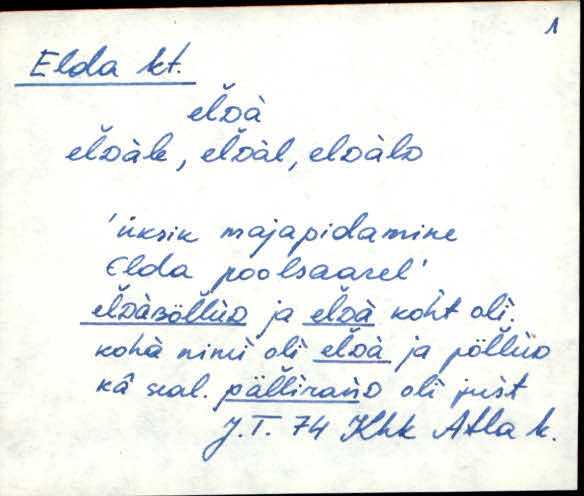 1
Elda kt.
el̆dà
el̆dàle, el̆dàl, eldàld
'üksik majapidamine
Elda poolsaarel'
el̆dàʙöl̆lüᴅ ja el̆dà koht oli.
kohà nimi oli el̆dà ja pöl̆lüᴅ
kâ seal. päl̆liraǹᴅ oli just
J.T. 74 Khk Atla k.